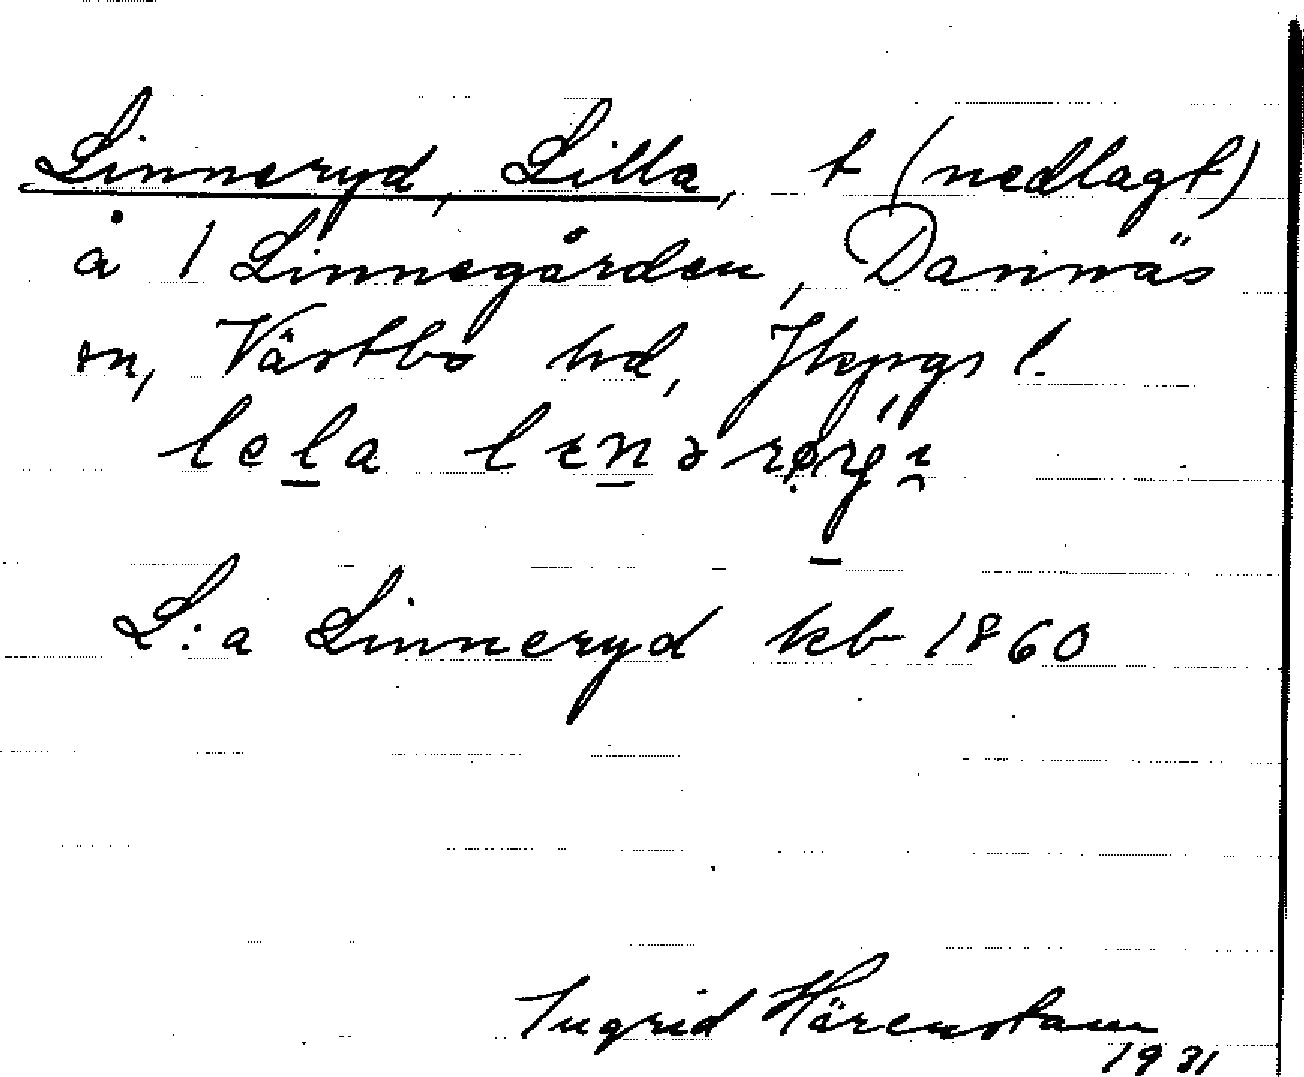 Linneryd, Lilla, t (nedlagt)
å 1 Linnegården, Dannäs
sn, Västbo hd, Jkpgs l.
lela
L:a Linneryd kb 1860
Ingrid Härenstam
1931